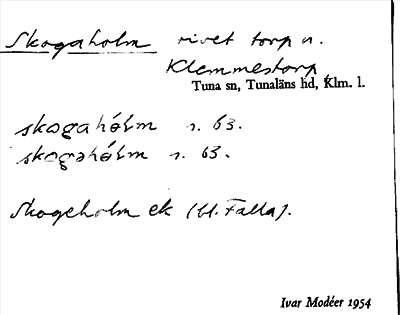 Skogaholm rivet torp u.
Klemmestorp
Tuna sn, Tunaläns hd, Klm. l.
skogahólm s. 63.
skogahólm s. 63.
Skogeholm ek (bl. Falla).
Ivar Modéer 1954